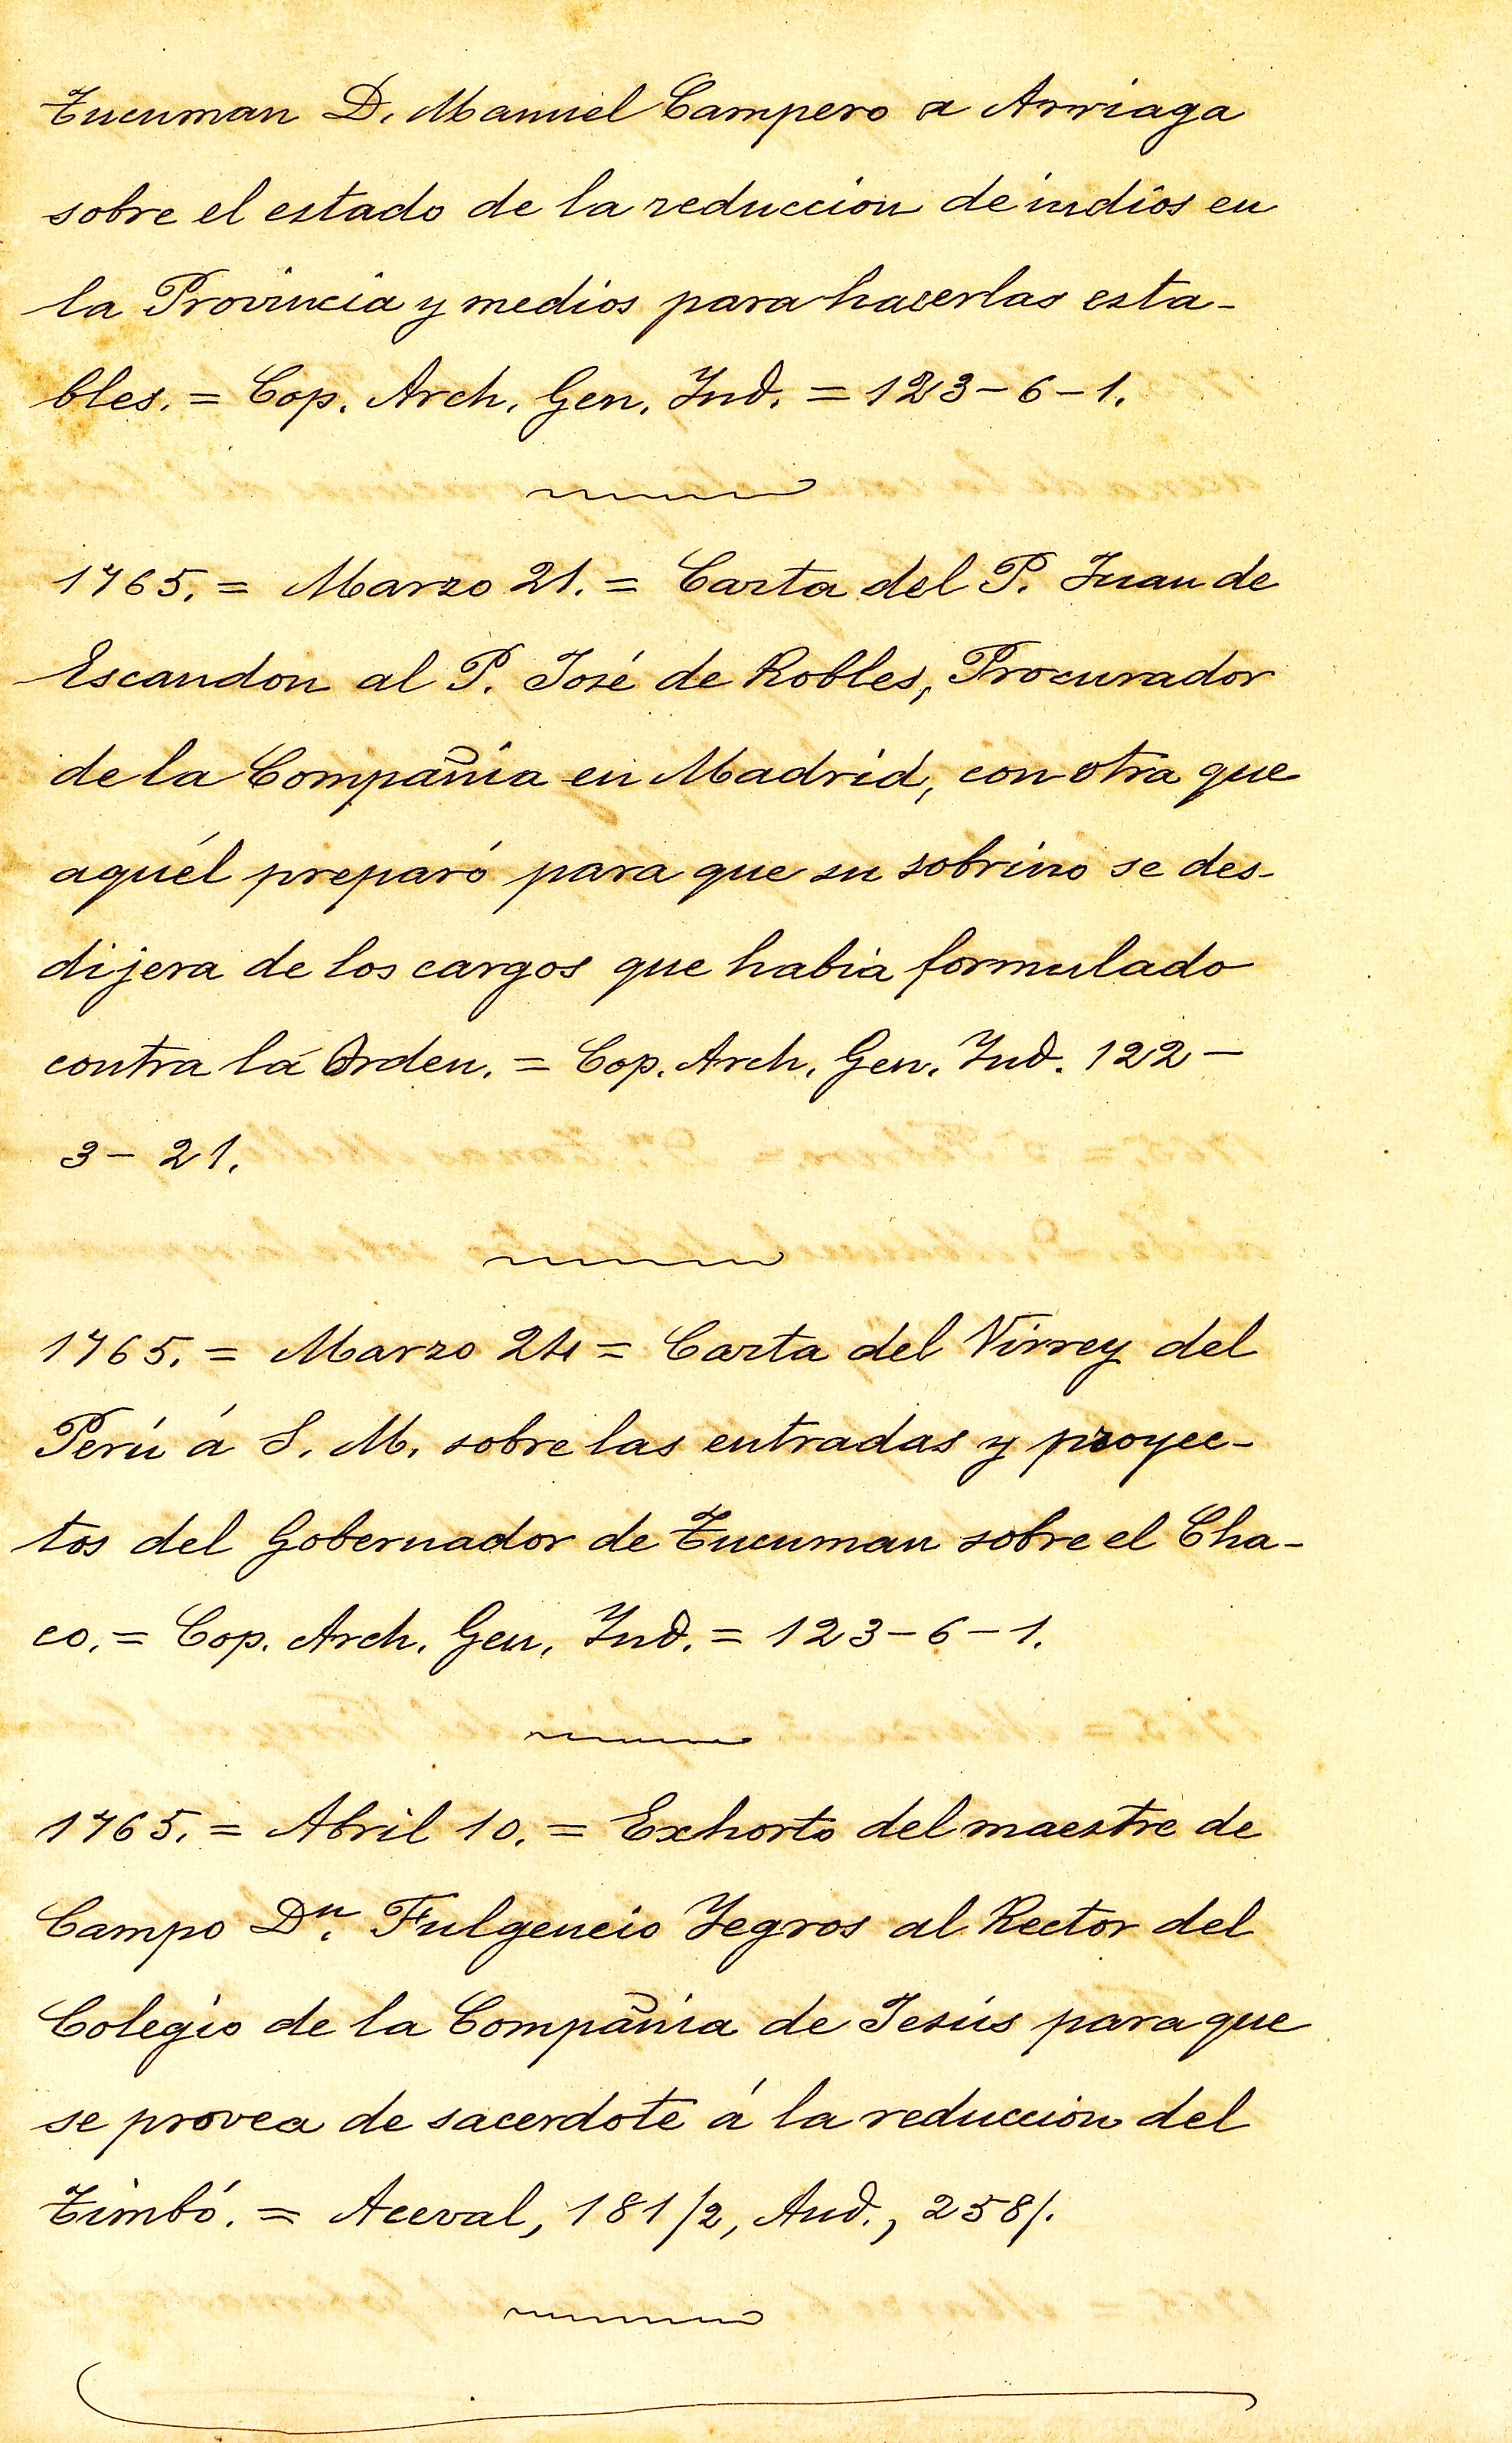 Tucuman D. Manuel Campero a Arriaga
sobre el estado de la reduccion de indios en
la Provincia y medios para hacerlas esta-
bles. = Cop. Arch. Gen. Ind. = 123-6-1.
1765. = Marzo 21. = Carta del P. Juan de
Escandon al P. José de Robles, Procurador
de la Compañia en Madrid, con otra que
aquél preparó para que su sobrino se des-
dijera de los cargos que habia formulado
contra la Orden. = Cop. Arch. Gen. Ind. 122-
3-21.
1765. = Marzo 24 = Carta del Virrey del
Perú á S. M. sobre las entradas y proyec-
tos del Gobernador de Tucuman sobre el Cha-
co. = Cop. Arch. Gen. Ind. = 123-6-1.
1765. = Abril 10. = Exhorto del maestre de
Campo Dn. Fulgencio Yegros al Rector del
Colegio de la Compañia de Jesús para que
se provea de sacerdote á la reduccion del
Timbó. = Aceval, 181/2, And., 258/.